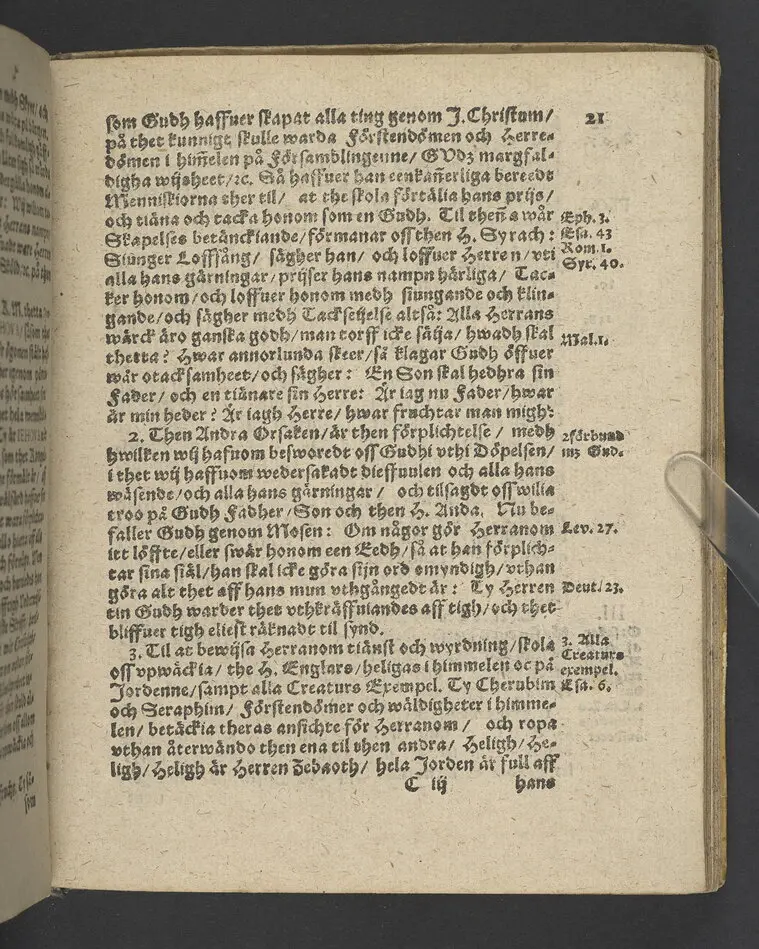 som Gudh haffuer skapat alla ting genom J. Christum/
21
på thet kunnigt skulle warda Förstendömen och Herre-
dömen i him̃elen på Församblingenne/ GVDz margfal-
digha wijsheet/ ꝛc. Så haffuer han eenkan̄erliga bereedt
Menniskiorna ther til/ at the skola förtälia hans prijs/
och tiäna och tacka honom som en Gudh. Til then̄a wår
Eph. 3.
Skapelses betänckiande/ förmanar oss then H. Syrach:
Esa. 43
Siunger Loffsång/ sägher han/ och loffuer Herren/ vti
Rom. 1.
alla hans gärningar/ prijser hans nampn härliga/ Tac-
Syr. 40.
ker honom/ och loffuer honom medh siungande och klin-
gande/ och sägher medh Tacksetielse altså: Alla Herrans
wärck äro ganska godh/ man torff icke säija/ hwadh skal
Mal. 1.
thetta? Hwar annorlunda skeer/ så klagar Gudh öffuer
wår otacksamheet/ och sägher: En Son skal hedhra sin
Fader/ och en tiänare sin Herre: Är iag nu Fader/ hwar
är min heder? Är iagh Herre/ hwar fruchtar man migh:
2. Then Andra Orsaken/ är then förplichtelse/ medh
2förbund
hwilken wij hafuom besworedt oss Gudhi vthi Döpelsen/
mz Gud.
i thet wij haffuom wedersakadt dieffuulen och alla hans
wäsende/ och alla hans gärningar/ och tilsagdt oss wilia
troo på Gudh Fadher/ Son och then H. Anda. Nu be-
faller Gudh genom Mosen: Om någor gör Herranom
Lev. 27.
itt löffte/ eller swär honom een Eedh/ så at han förplich-
tar sina siäl/ han skal icke göra sijn ord omyndigh/ vthan
göra alt thet aff hans mun vthgångedt är: Ty Herren
Deut. 23.
tin Gudh warder thet vthkräffuiandes aff tigh/ och thet
bliffuer tigh eliest räknadt til synd.
3. Til at bewijsa Herranom tiänst och wyrdning/ skola
3. Alla
oss vpwäckia/ the H. Englars/ heligas i himmelen oc på
Creaturs
exempel.
Jordenne/ sampt alla Creaturs Exempel. Ty Cherubim
Esa. 6.
och Seraphim/ Förstendömer och wäldigheter i himme-
len/ betäckia theras ansichte för Herranom/ och ropa
vthan återwändo then ena til then andra/ Heligh/ He-
ligh/ Heligh är Herren Zebaoth/ hela Jorden är full aff
C iij
hans